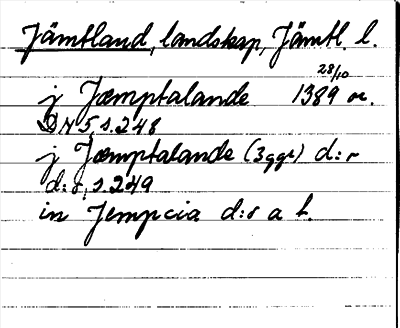 Jämtland, landskap, Jämtl. l.
28/10
j Jæmptalande 1389 or.
DN 5, s. 248
j Jæmptalande (3 ggr) d:r
d:s, s. 249
in Jempcia d:s a h.